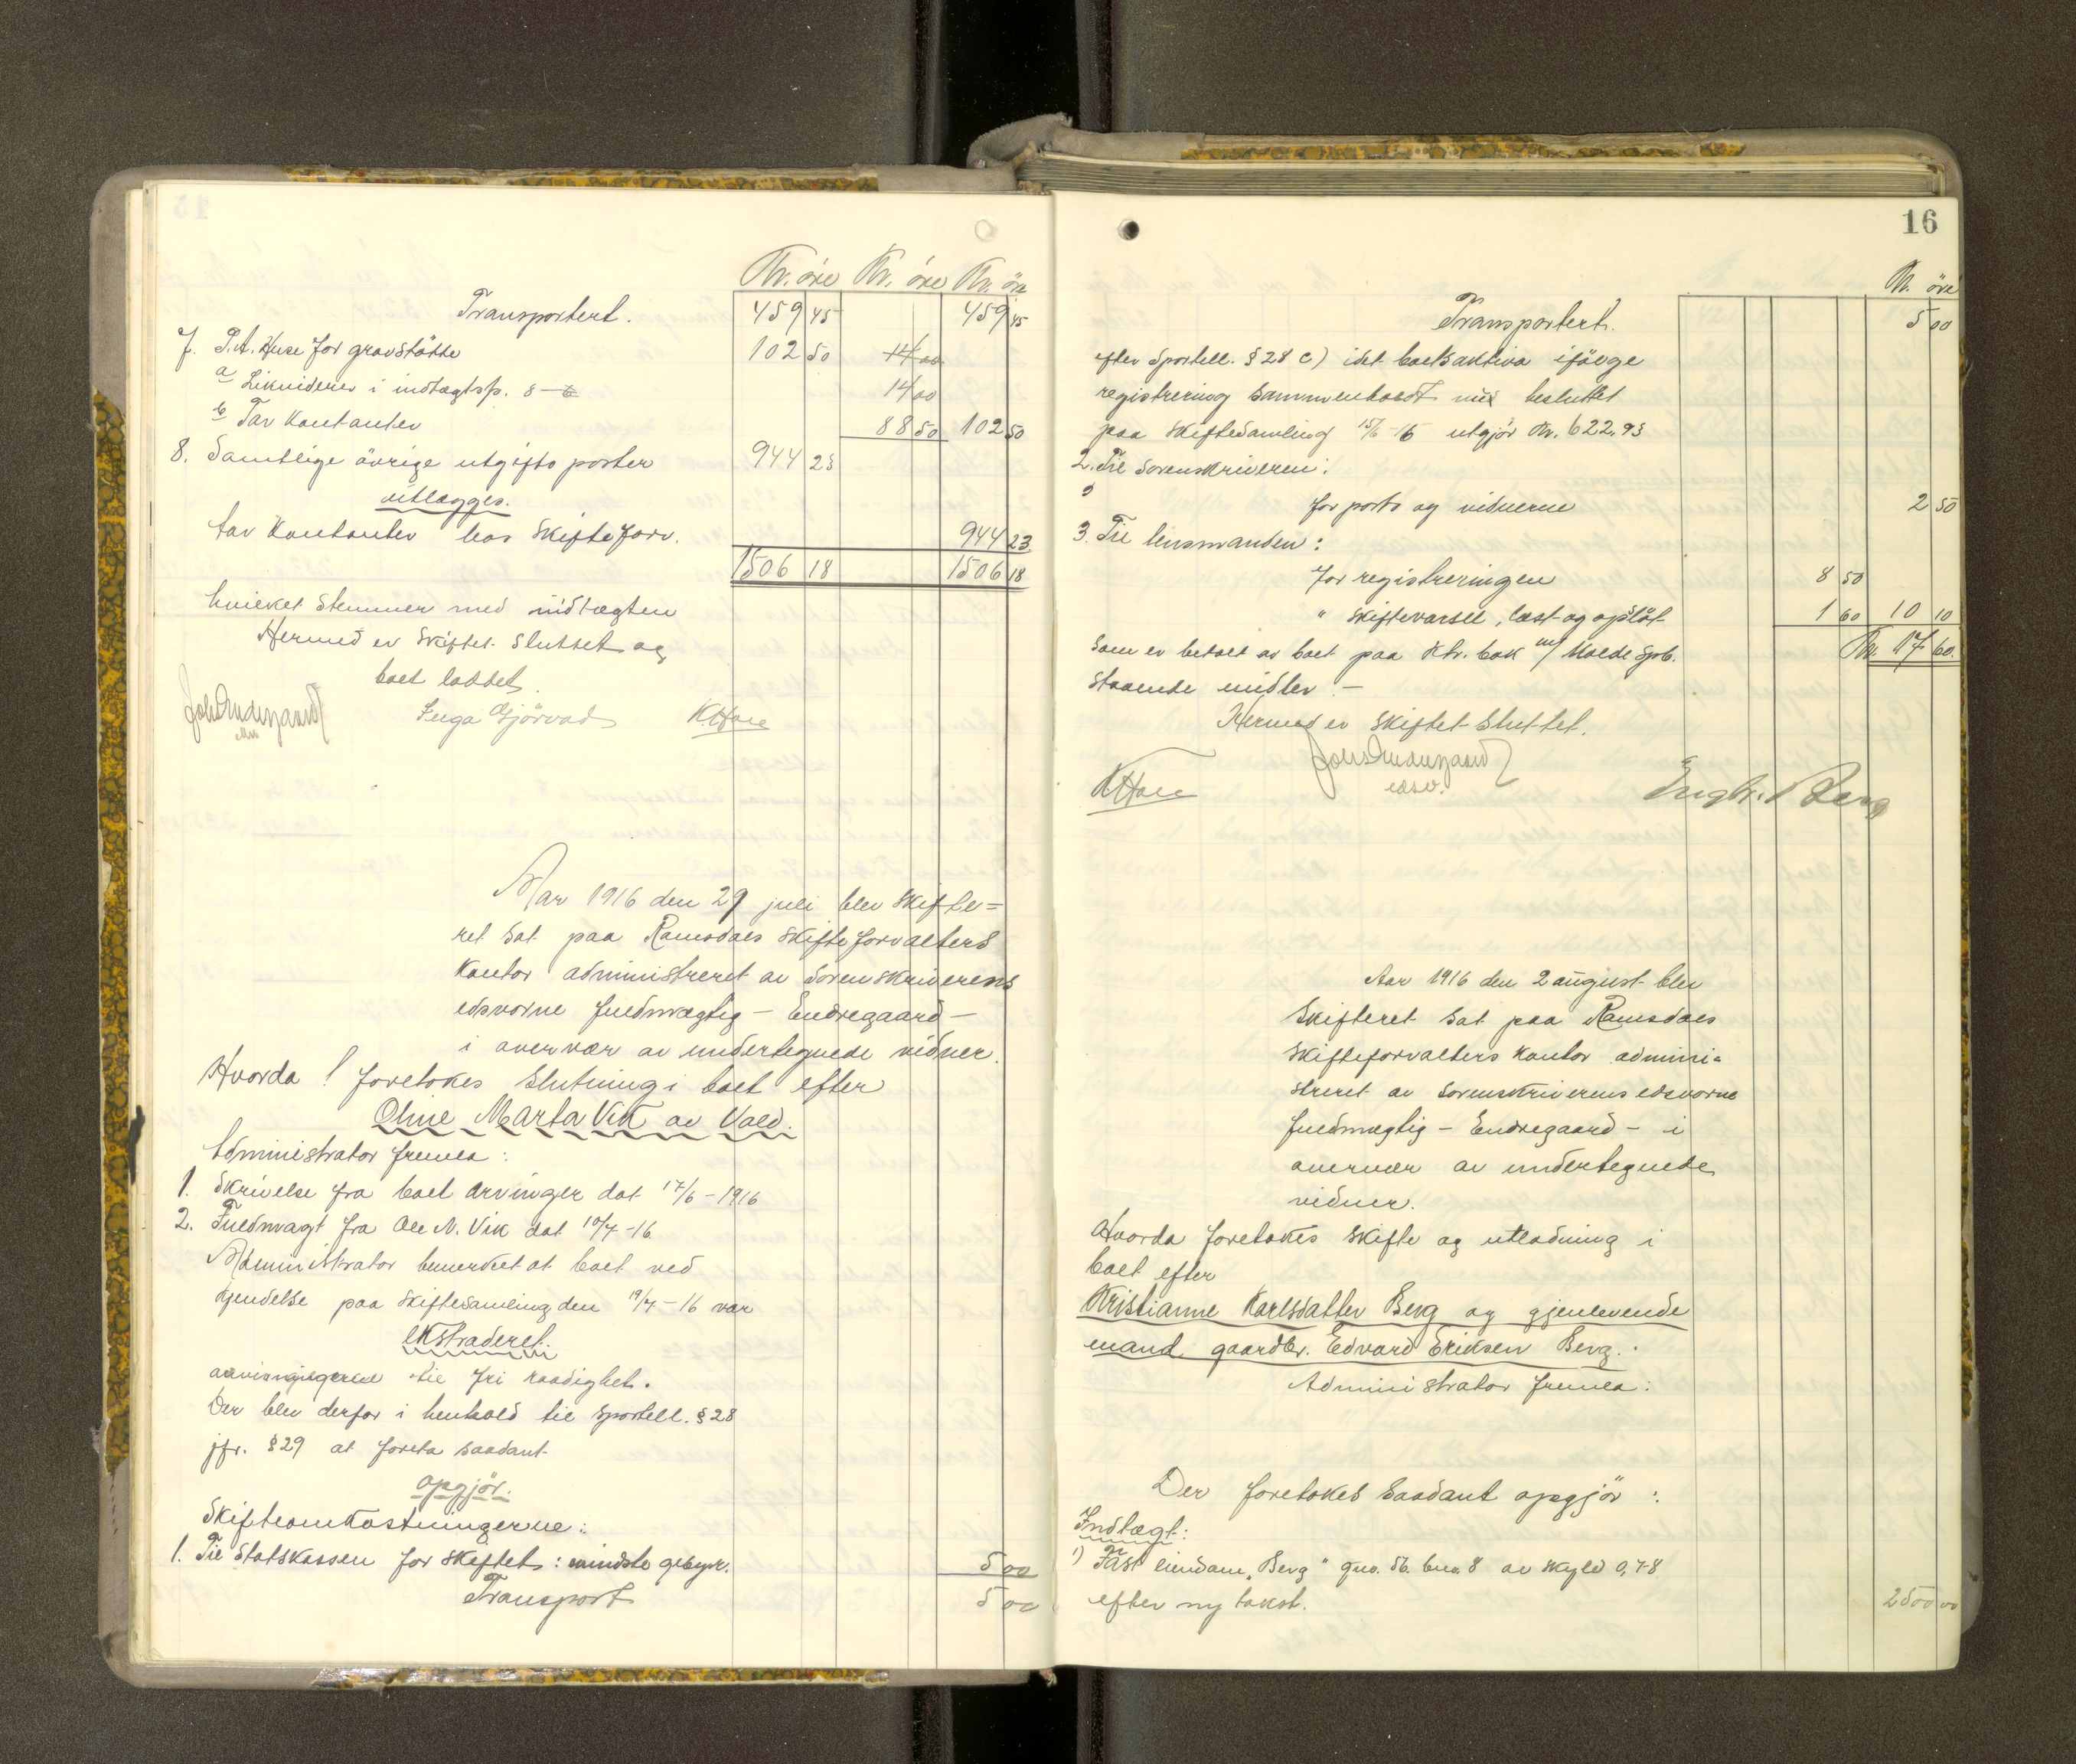 Kr. øre Kr. øre Kr. øre
Transportert. 459 45 459 45
7. P.A. Huse for gravstøtte 102 50 14 00
a Likviderer i indtægtsp. 8 – b 14 00
b Tar kontanter 88 50 102 50
8. Samtlige øvrige utgifts poster 944 23
utlægges.
tar kontanter hos Skifteforv. 944 23
1506 18 1506 18
hvilket stemmer med indtægten
Hermed er skiftet sluttet og
boet loddet.
John Endregaard Inga Gjørvad K Hoel
Aar 1916 den 29 juli blev skifte=
ret sat paa Romsdals skifteforvalters
kontor administreret av sorenskriverens
edsvorne fuldmægtig – Endregaard –
i overvær av undertegnede vidner.
Hvorda! foretokes slutning i boet efter
Oline Marta Vik av Vold.
Administrator fremla:
1. Skrivelse fra boets arvinger dat 17/6 – 1916
2. Fuldmagt fra Ole N. Vik dat 10/7 -16
Administrator bemerket at boet ved
kjendelse paa skiftesamling den 19/7 – 16 var
ekstraderet.
arvingerne til fri raadighet.
Der blev derfor i henhold til sportell. § 28
jfr. § 29 at foreta saadant
opgjør.
Skifteomkostningerne:
1. Til Statskassen for skiftet: mindste gebyr. 5 00
Transport 5 00
16
Kr. øre
Transportert. 5 00
efter Sportell. § 28 c) idet boets aktiva ifølge
registrering sammenholdt med besluttet
paa skiftesamling 15/6 -16 utgjør Kr. 622.93
2. Til Sorenskriveren:
for porto og vidnerne 2 50
3. Til lensmanden:
for registreringen 8 50
" skiftevarsel, læst og opslåt 1 60 10 10
som er betalt av boet paa Ktr. bok m/ Molde Spb. Kr. 17 60.
staaende midler. –
Hermed er skiftet sluttet.
K Hoel John Endregaard edsv. Engbr. Berg
Aar 1916 den 2 august blev
Skifteret sat paa Romsdals
skifteforvalters kontor admini=
streret av sorenskriverens edsvorne
fuldmægtig – Endregaard – i
overvær av undertegnede
vidner.
Hvorda foretokes skifte og utlodning i
boet efter
Kristianne Karlsdatter Berg og gjenlevende
mand gaardbr. Edvard Eriksen Berg.
Administrator fremla:
Der foretokes saadant opgjør:
Indtægt:
1) Fast eiendom "Berg" gno. 56. bno. 8 av skyld 0,78
efter ny takst. 2500 00